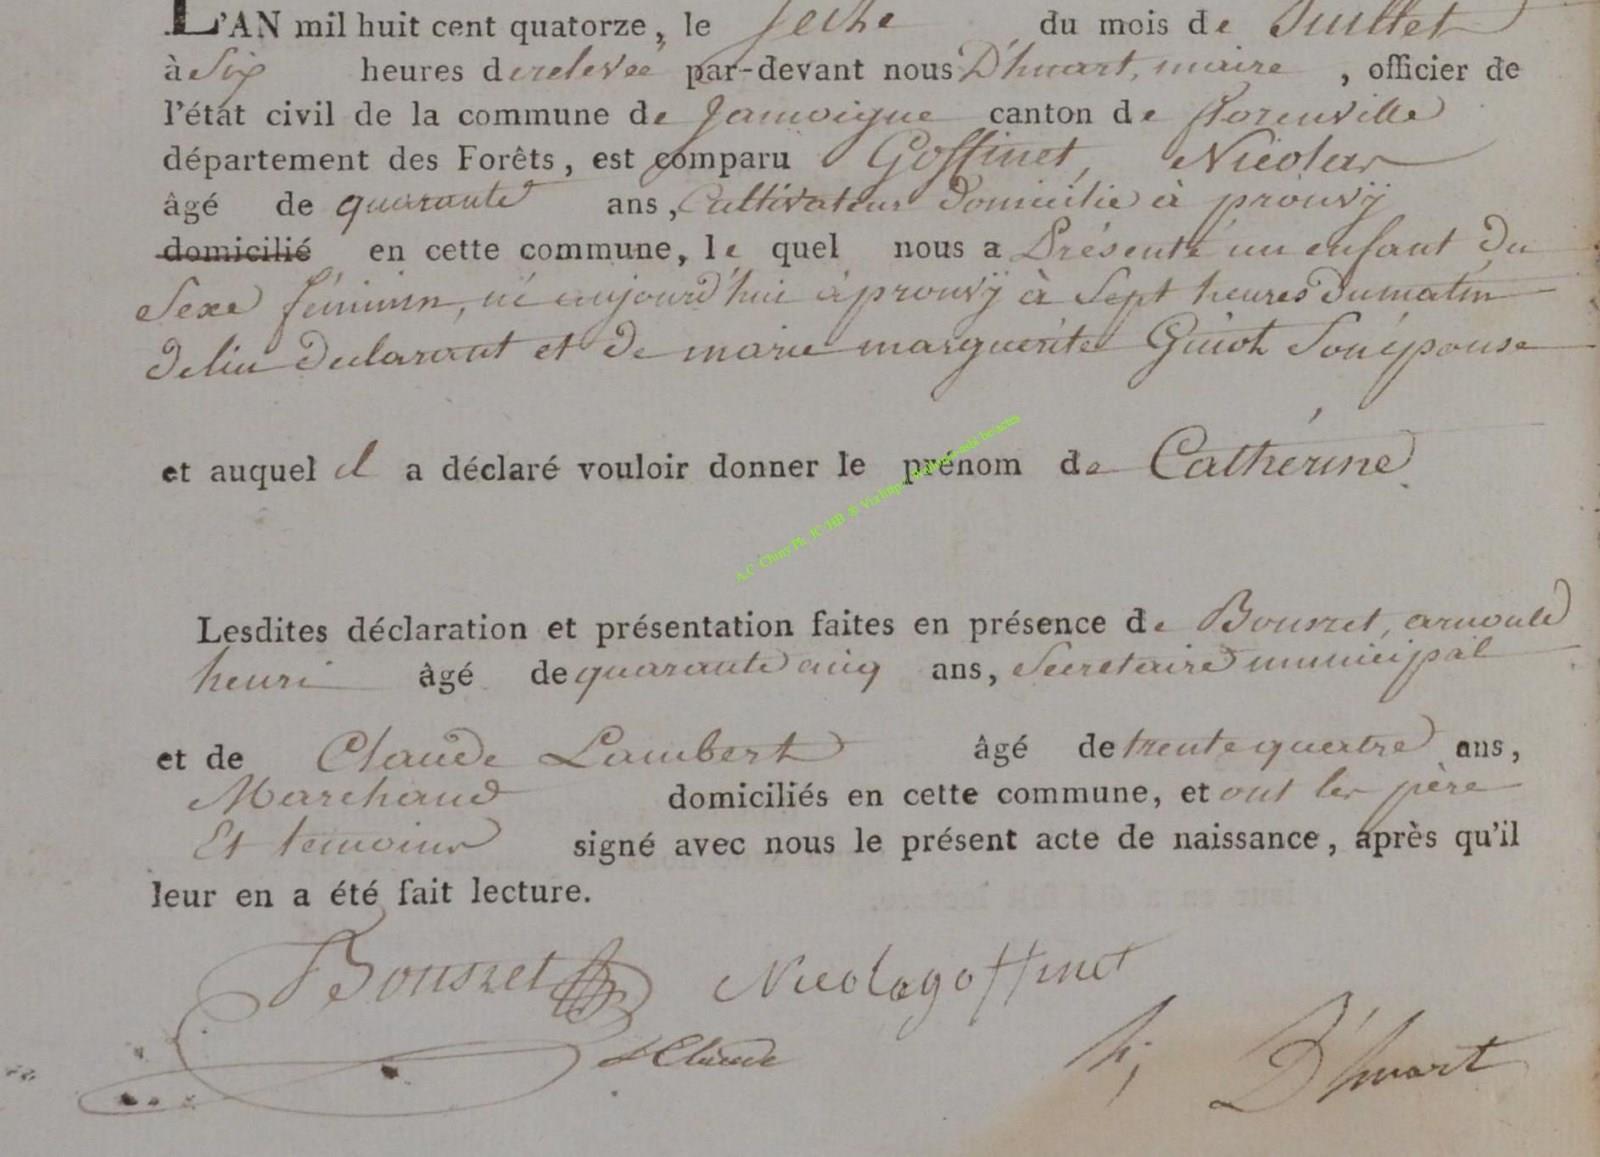 L'AN mil huit cent quatorze, le seize du mois de Juillet
à Six heures de relevée par-devant nous D'huart, maire, officier de
l'état civil de la commune de Jamoigne canton de florenville
département des Forêts, est comparu Goffinet, Nicolas
âgé de quarante ans, Cultivateur domicilié à prouvÿ
domicilié en cette commune, le quel nous a Présenté un enfant du
Sexe féminin, né aujourd'hui à prouvÿ à Sept heures du matin
de lui declarant et de marie marguerite Guiot Son épouse
et auquel il a déclaré vouloir donner le prénom de Cathérine
A.C. Chiny Ph. JC HB
Lesdites déclaration et présentation faites en présence de Bousret, arnould
henri âgé de quarante cinq ans, Secretaire municipal
et de Claude Lambert âgé de trente quatre ans,
Marchand domiciliés en cette commune, et ont les père
Et temoins signé avec nous le présent acte de naissance, après qu'il
leur en a été fait lecture.
Bousret Nicola goffinet
L Claude D'huart